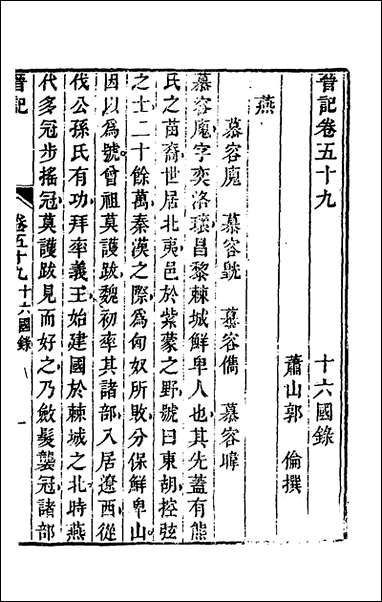 晉記卷五十九　十六國錄
蕭山郭　倫撰
燕
慕容廆　慕容皝　慕容儁　慕容暐
慕容廆字奕洛瓌昌黎棘城鮮卑人也其先蓋有熊
氏之苗裔世居北夷邑於紫蒙之野號曰東胡控弦
之士二十餘萬秦漢之際為匈奴所敗分保鮮卑山
因以為號曾祖莫護跋魏初率其諸部入居遼西從
伐公孫氏有功拜率義王始建國於棘城之北時燕
代多冠步搖冠莫護跋見而好之乃斂髮襲冠諸部
晉記
卷五十九　十六國錄　一